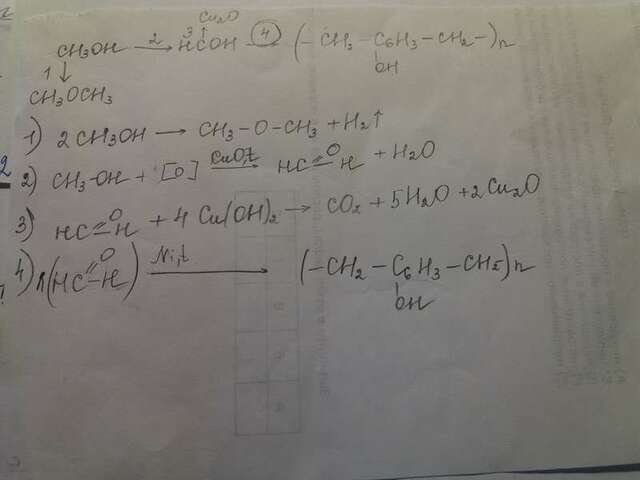 Cu2O
CH3OH 2→ 3↑ HCOH 4→ (-CH2-C6H3-CH2-)n
OH
1↓
CH3OCH3
1) 2CH3OH → CH3-O-CH3 + H2↑
2) CH3-OH + [O] CuO,t→ HC=O H + H2O
3) HC=O H + 4Cu(OH)2 → CO2 + 5H2O + 2Cu2O
4) n(HC=O-H) Ni,t→ (-CH2-C6H3-CH2-)n
OH